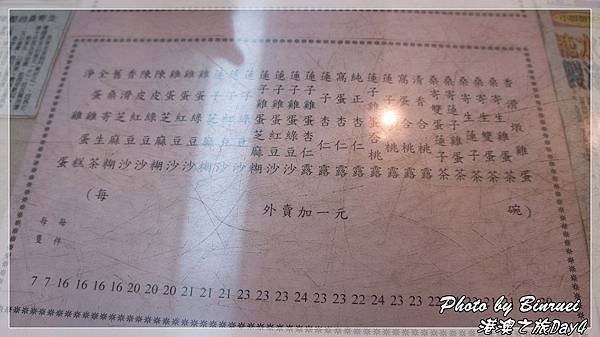 香滑燉雞蛋
桑寄生雞蛋茶
桑寄生雙蛋茶
桑寄生蓮子茶
清香合桃露
窩蛋合桃露
蓮子合桃露
蓮子雞蛋合桃露
純正杏仁露
窩蛋杏仁露
蓮子杏仁露
蓮子雞蛋杏仁露
蓮子雞蛋綠豆沙
蓮子雞蛋紅豆沙
蓮子雞蛋芝麻糊
蓮子綠豆沙
蓮子紅豆沙
蓮子芝麻糊
雞蛋綠豆沙
雞蛋紅豆沙
雞蛋芝麻糊
陳皮綠豆沙
陳皮紅豆沙
香滑芝麻糊
舊桑寄生茶
全蛋雞蛋糕
淨雞蛋
(每 碗)
外賣加一元
每件
每隻
7 7 16 16 16 16 20 20 20 21 21 21 23 23 23 24 23 23 22 24 23 23 22
Photo by Binruei
港澳之旅Day4